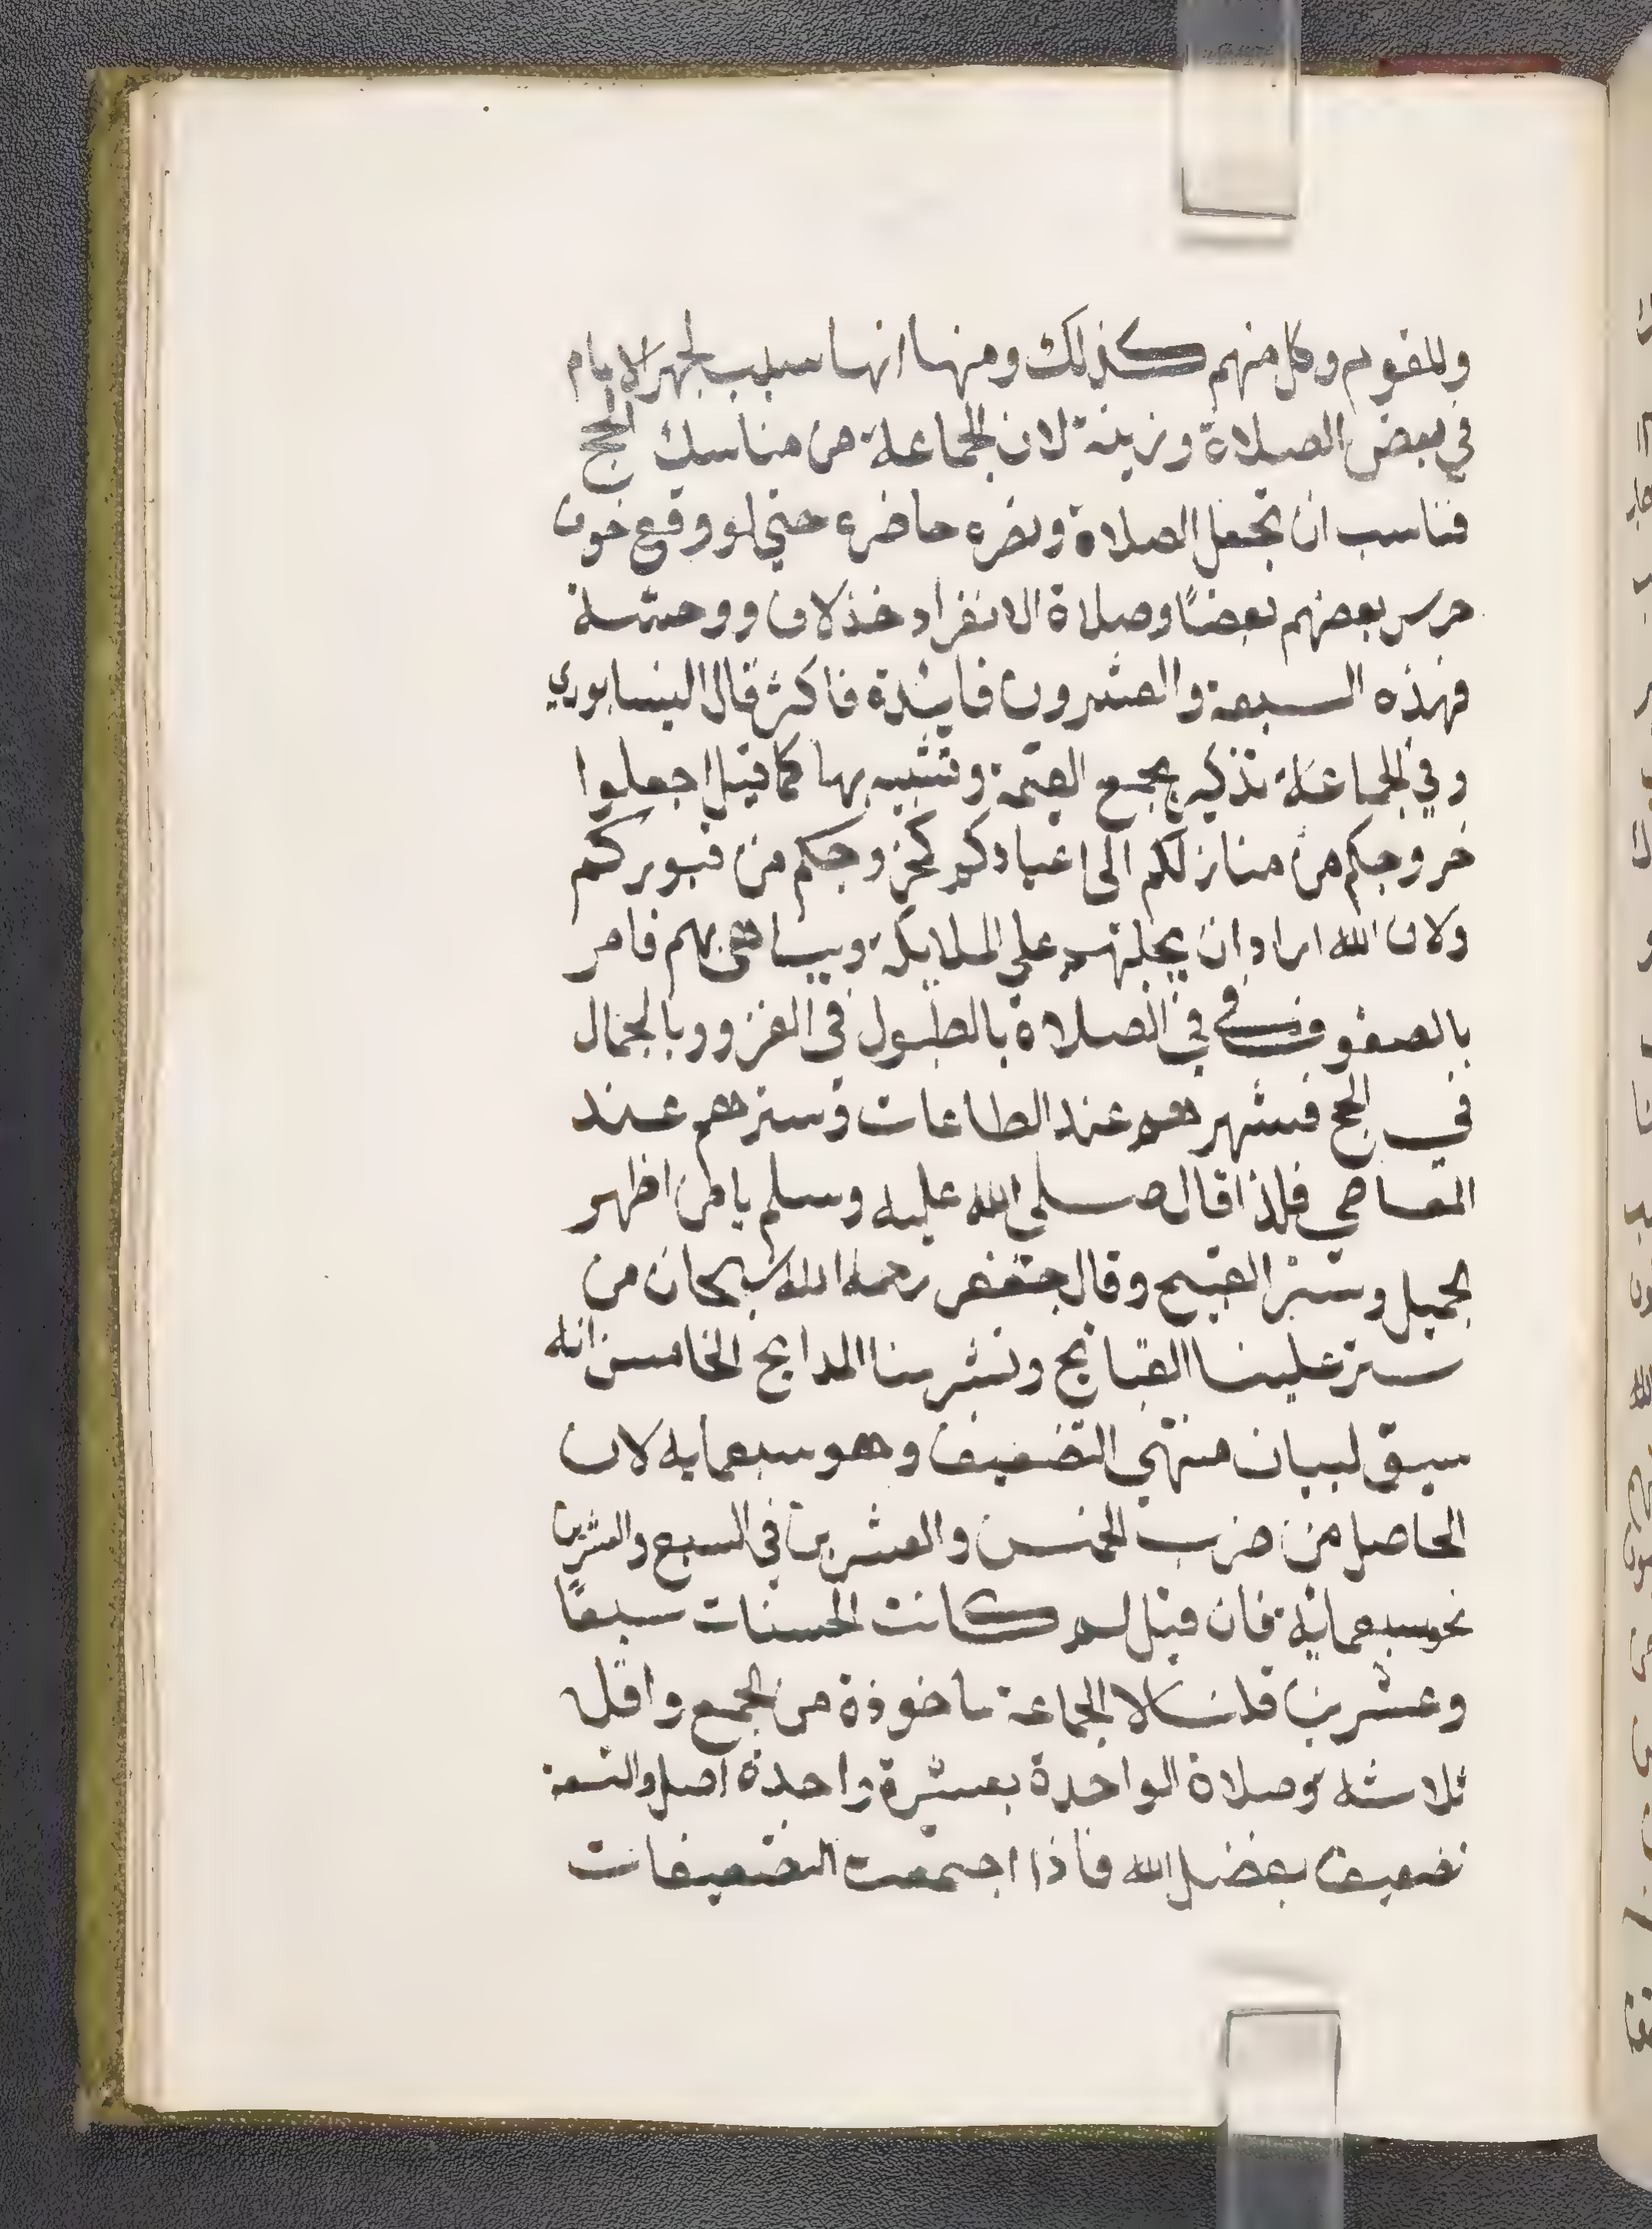 وللقوم وكل منهم كذلك ومنها انها سبب لجهر الامام
في بعض الصلاة وزينة لان الجماعة من مناسك الحج
فناسب ان تجعل الصلاة ونضره حاضره حتي لو وقع خوف
حرس بعضهم بعضًا وصلاة الانفراد خذلان ووحشة
فهذه السبعة والعشرون فائدة فاكثر قال النيسابوري
وفي الجماعة تذكير بجمع القيمة وتشبيه بها كما قيل اجعلوا
خروجكم من منازلكم الى اعيادكم كخروجكم من قبوركم
ولان الله اراد ان يجلهم على الملايكة ويباهى بهم فامر
بالصفوف في الصلاة بالطبول في الغزو وبالجمال
في الحج فشهرهم عند الطاعات وسترهم عند
المعاصي فلذا قال صلى الله عليه وسلم يا من اظهر
الجميل وستر القبيح وقال جعفر رحمه الله سبحان من
ستر علينا القبائح ونشر منا المدايح الخامس انه
سيق لبيان منتهي التضعيف وهو سبعمايه لان
الحاصل من ضرب الخمس والعشرين في السبع والعشرين
نحو سبعمائة فان قيل لم كانت الحسنات سبعًا
وعشرين قلنا لان الجماعة ماخوذة من الجمع واقل
ثلاثه وصلاة الواحدة بعشرة واحدة اصل والتسعة
تضعيف بفضل الله فاذا اجتمعت التضعيفات